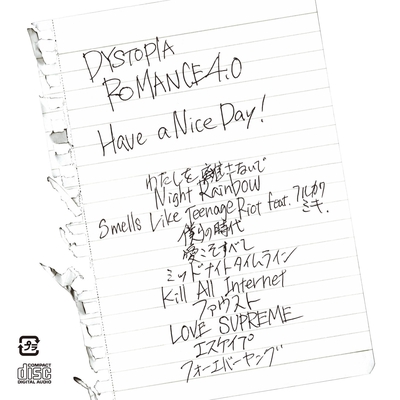 DYSTOPIA
ROMANCE 4.0
Have a Nice Day!
わたしを離さないで
Night Rainbow
Smells Like Teenage Riot feat. フルカワミキ.
僕らの時代
愛こそすべて
ミッドナイトタイムライン
Kill All Internet
ファウスト
LOVE SUPREME
エスケイプ
フォーエバーヤング
プラ
COMPACT
disc
DIGITAL AUDIO